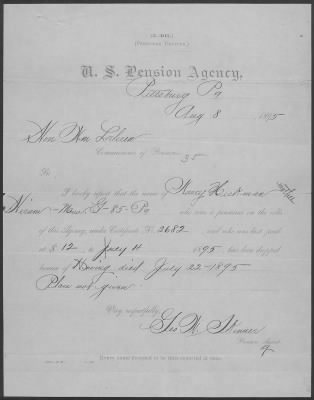 (3—301.)
(PENSIONER DROPPED.)
U. S. Pension Agency,
Pittsburg Pa
Aug 8 1895
Hon Wm Lochren
Commissioner of Pensions
Sir
I hereby report that the name of Nancy Hickman mother
Hiram G-85-Pa who was a pensioner on the rolls
of this Agency, under Certificate No. 2682 and who was last paid
at $12, to July 4 1895, has been dropped
because of Having died July 22-1895
Place not given
Very respectfully,
Geo W. Skinner
Pension Agent.
Every name dropped to be thus reported at once.